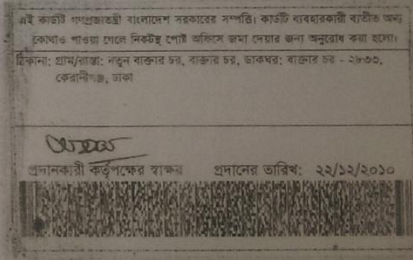 এই কার্ডটি গণপ্রজাতন্ত্রী বাংলাদেশ সরকারের সম্পত্তি। কার্ডটি ব্যবহারকারী ব্যতীত অন্য
কোথাও পাওয়া গেলে নিকটস্থ পোষ্ট অফিসে জমা দেয়ার জন্য অনুরোধ করা হলো।
ঠিকানা: গ্রাম/রাস্তা: নতুন বাক্তার চর, বাক্তার চর, ডাকঘর: বাক্তার চর - ২৮৩৩,
কেরানীগঞ্জ, ঢাকা
প্রদানকারী কর্তৃপক্ষের স্বাক্ষর প্রদানের তারিখ: ২২/১২/২০১০